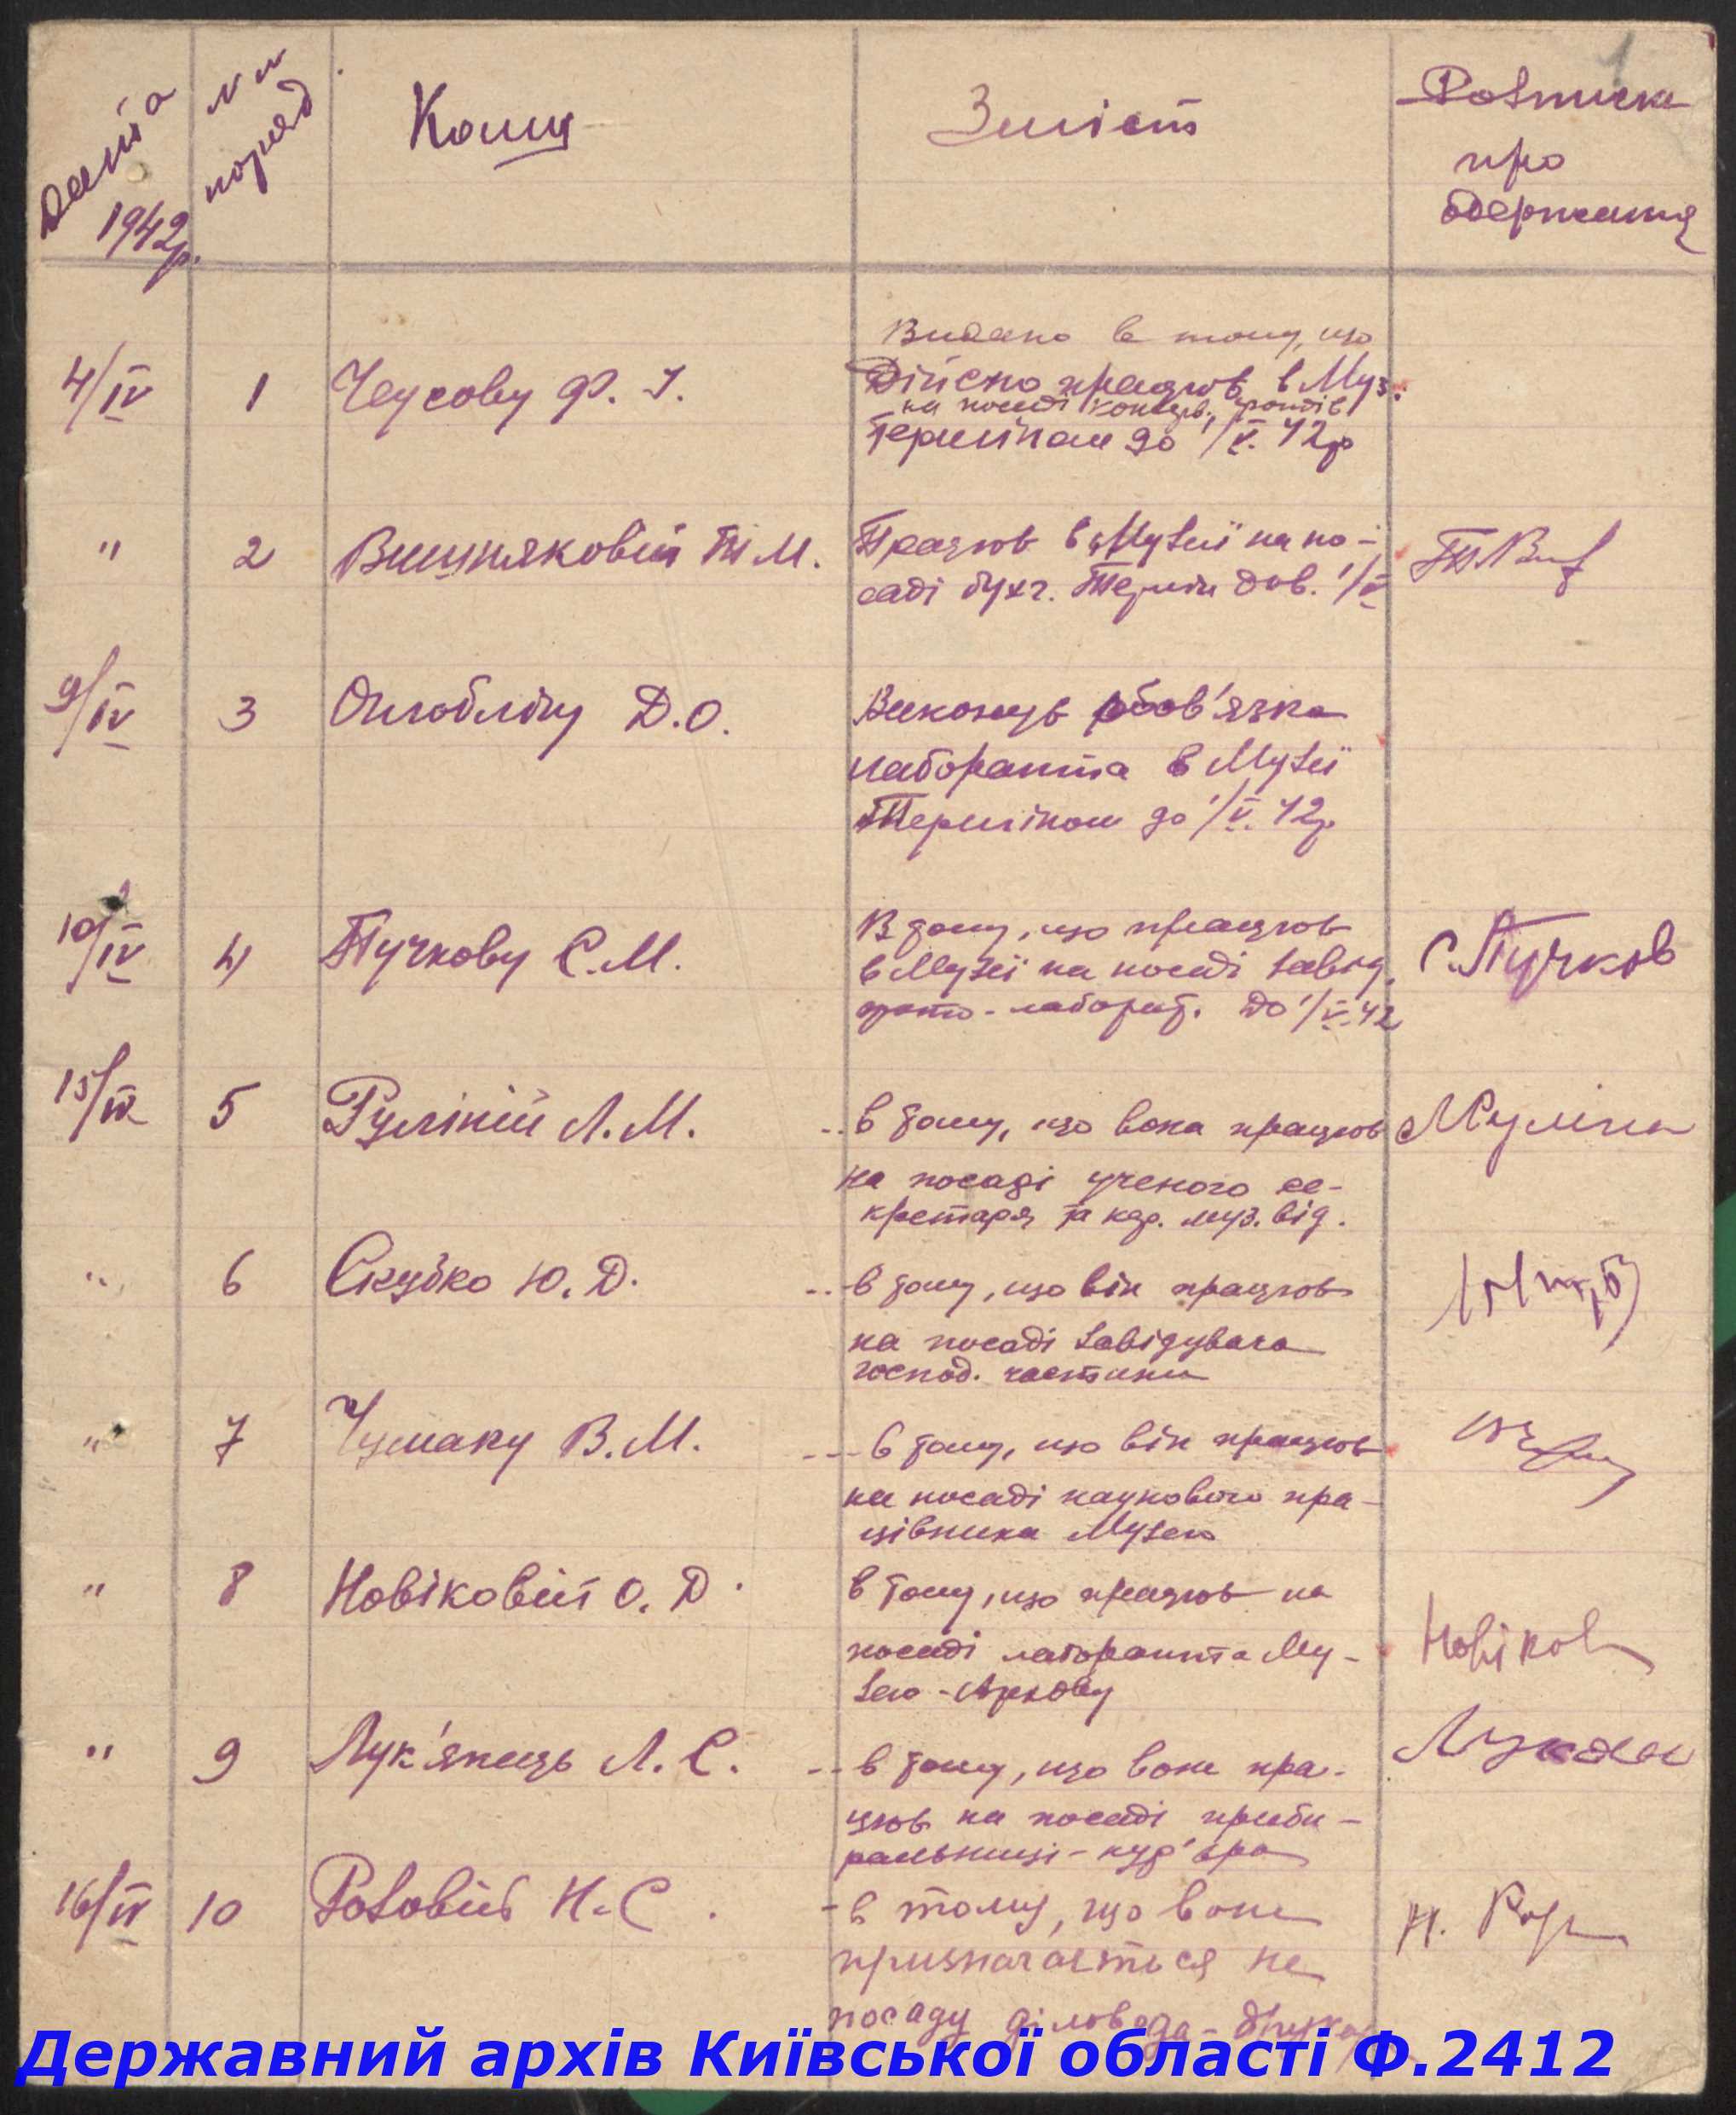 1
Дата
1942р.
NN
поряд
Кому
Зміст
Розписка
про
одержання
Видано в тому, що
4/IV 1 Чеусову Ф. І. Дійсно працює в Муз.
на посаді консерв. фондів
Терміном до 1/V. 42р
" 2 Вишняковій Т М. Працює в Музеї на по-
саді бухг. Термін дов. 1/V
9/IV 3 Оглобліну Д.О. Виконує обов'язки
лаборанта в Музеї
Терміном до 1/V. 42р
10/IV 4 Пучкову С.М. В тому, що працює С. Пучков
в Музеї на посаді завід.
фото-лаборат. до 1/V.42
15/IV 5 Руліній Л.М. -- в тому, що вона працює Руліна
на посаді ученого се-
кретаря та кер. муз. від.
" 6 Скубко Ю. Д. -- в тому, що він працює
на посаді завідувача
господ. частини
" 7 Чумаку В.М. -- в тому, що він працює
на посаді наукового пра-
цівника Музею
" 8 Новіковій О. Д. в тому, що працює на
посаді лаборанта Му- Новіков
зею-Архіву
" 9 Лук'янець Л. С. -- в тому, що вона пра-
цює на посаді приби-
ральниці-кур'єра
16/IV 10 Розовій Н. С. - в тому, що вона Н. Роз
призначається на
посаду діловода-друкар
Державний архів Київської області Ф.2412